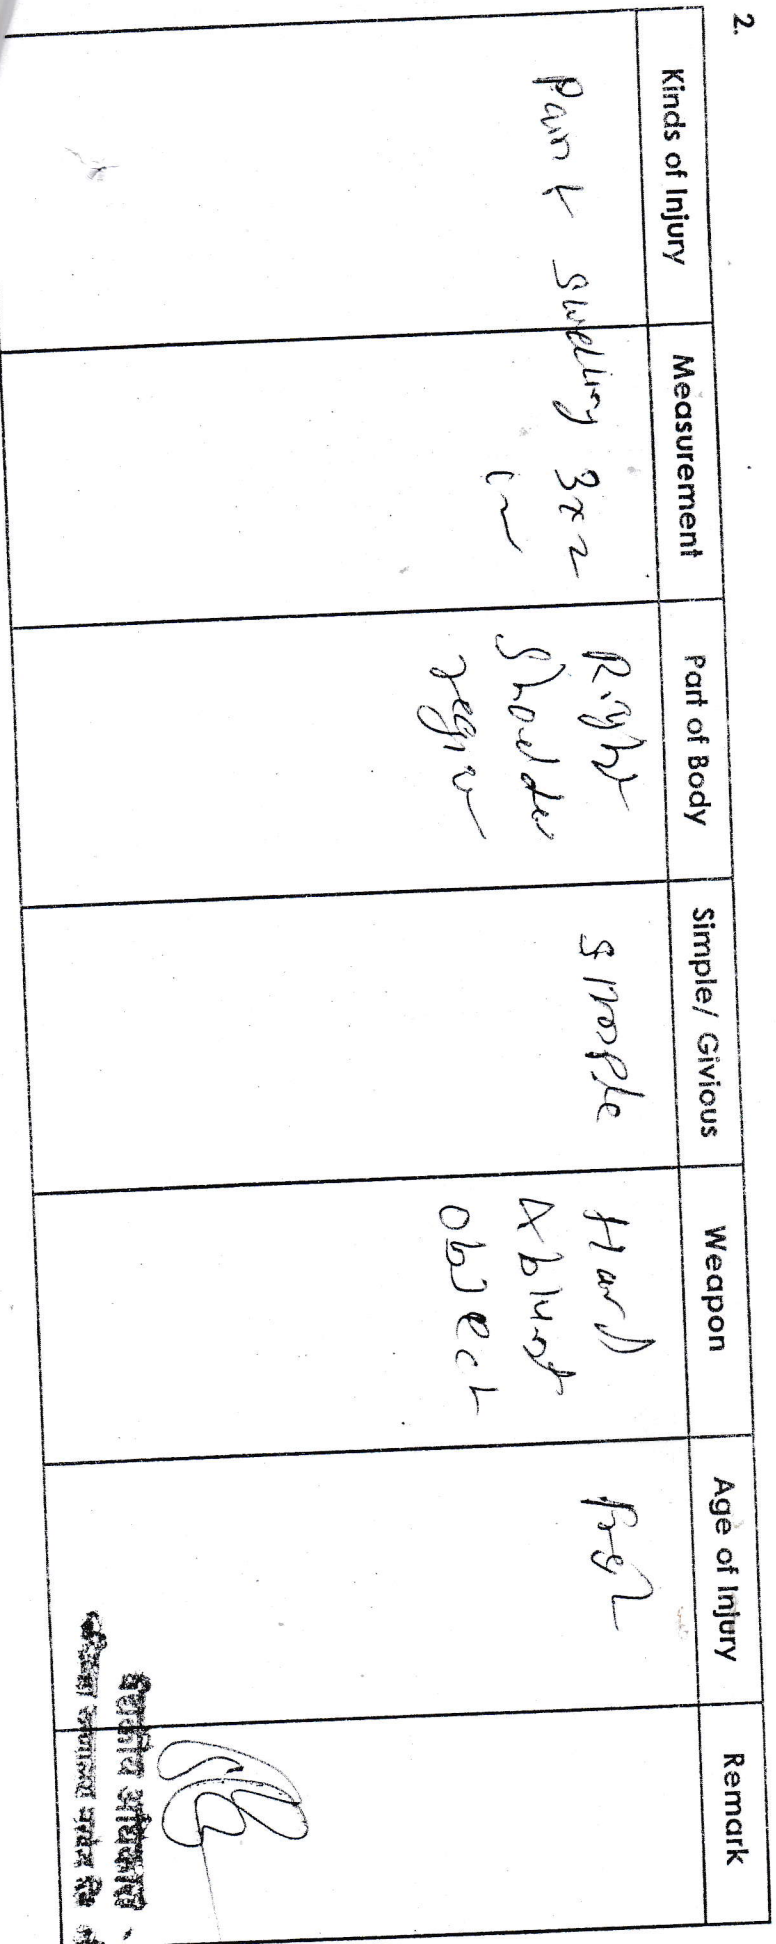 2.
Kinds of Injury
Measurement
Part of Body
Simple/ Givious
Weapon
Age of Injury
Remark
Pain + swelling
3x2
cm
Right
Shoulder
region
simple
Hard
& blunt
object
चिकित्सा अधिकारी